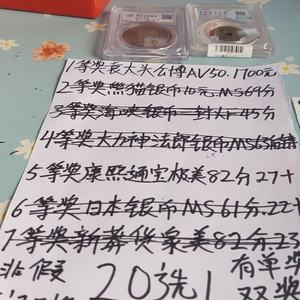 1等奖袁大头公博AV50.1700元
2等奖熊猫银币10元.MS69分
3等奖海峡银币一封厂45分
4等奖大力神法郎银币MS65
5等奖康熙通宝极美82分27+
6等奖日本银币MS61分.22+
7等奖新莽货泉美82分.23
非假 20洗1 有单奖
双奖